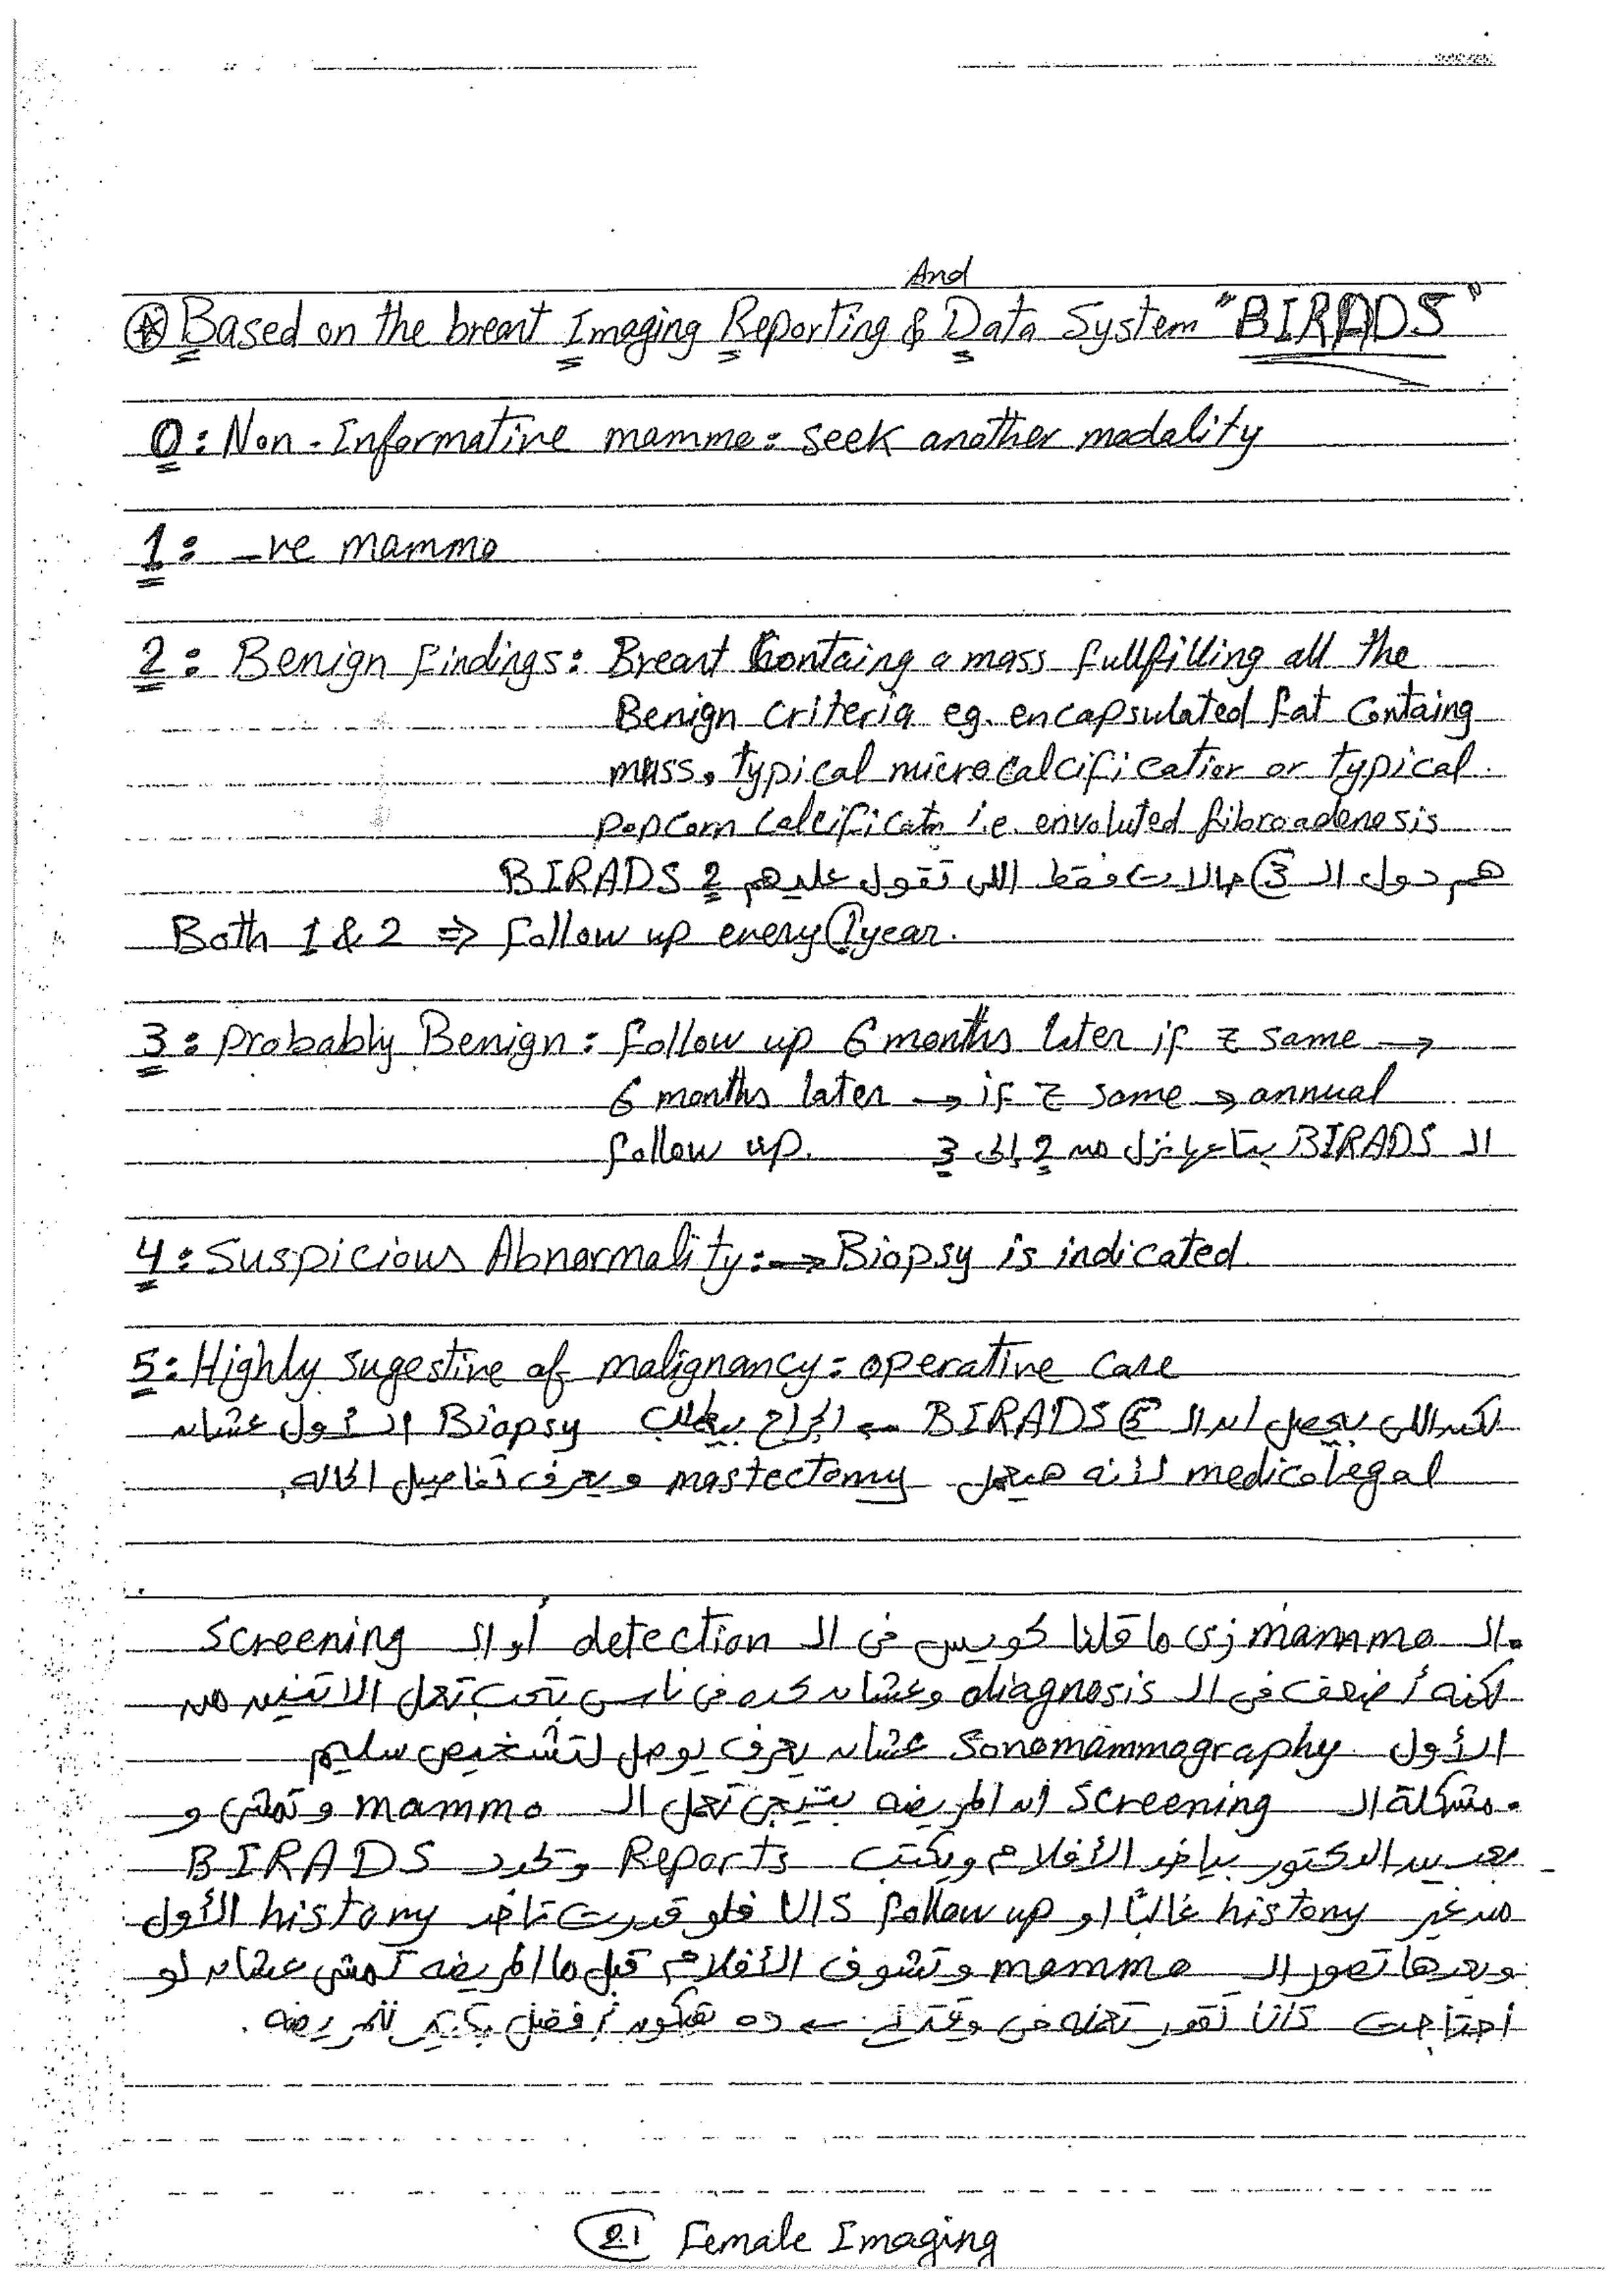 And
⊛ Based on the breart Imaging Reporting & Data System "BIRADS"
0: Non-Informative mamme: seek another modality
1: -ve mammo
2: Benign findings: Breart Containg a mass fullfilling all the
Benign criteria eg. encapsulated fat Containg
mass, typical microcalcification or typical
popcorn calcificatn i.e. envoluted fibroadenosis
هم دول الـ 3 حالات فقط اللى تقول عليهم BIRADS 2
Both 1 & 2 ⇒ follow up every 1 year.
3: probably Benign: follow up 6 months later if same →
6 months later → if same → annual
follow up. الـ BIRADS بتاعها نزل من 2 إلى 3
4: Suspicious Abnormality: → Biopsy is indicated
5: Highly sugestive of malignancy: operative case
لكن اللى بيحصل إن الـ BIRADS 5 ← الجراح بيطلب Biopsy الأول عشان
medicolegal لأنه هيعمل mastectomy ويعرف تفاصيل الحاله.
. الـ mammo زى ما قلنا كويس فى الـ detection أو الـ screening
لكنه أضعف فى الـ diagnosis وعشان كده فى ناس بتحب تعمل الاتنين من
الأول Sonomammography عشان يعرف يوصل لتشخيص سليم
. مشكلة الـ Screening إن المريضه بتيجى تعمل الـ mammo وتمشى و
بعدين الدكتور بياخد الأفلام ويكتب Reports وتحدد BIRADS
من غير history غالبًا او follow up US فلو قدرت تاخد history الأول
وبعدها تصور الـ mammo وتشوف الأفلام قبل ما المريضه تمشى عشان لو
احتاجت US تقدر تعمله فى وقتها ← ده هيكون أفضل بكتير للمريضه.
21 Female Imaging